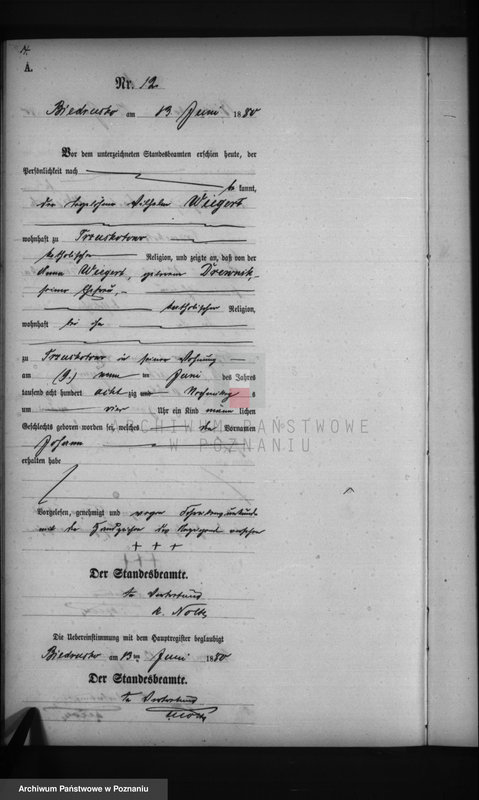 A.
Nr. 12
Biedrusko am 13 Juni 1880
Vor dem unterzeichneten Standesbeamten erschien heute, der
Persönlichkeit nach
be kannt,
der Tagelöhner Wilhelm Weigert
wohnhaft zu
katholischer Religion, und zeigte an, daß von der
Anna Weigert, geborenen Drewnik,
seiner Ehefrau,
katholischer Religion,
wohnhaft bei ihm
zu in seiner Wohnung
am (9.) neun ten Juni des Jahres
tausend acht hundert acht zig und Nachmittag s
um vier Uhr ein Kind männ lichen
Geschlechts geboren worden sei, welches den Vornamen
Johann
erhalten habe
ARCHIWUM PAŃSTWOWE
W POZNANIU
Vorgelesen, genehmigt und wegen Schreibensunkunde
mit dem Handzeichen des Anzeigenden versehen
+ + +
Der Standesbeamte.
In Vertretung
Die Uebereinstimmung mit dem Hauptregister beglaubigt
Biedrusko am 13ten Juni 1880
Der Standesbeamte.
In Vertretung
Archiwum Państwowe w Poznaniu